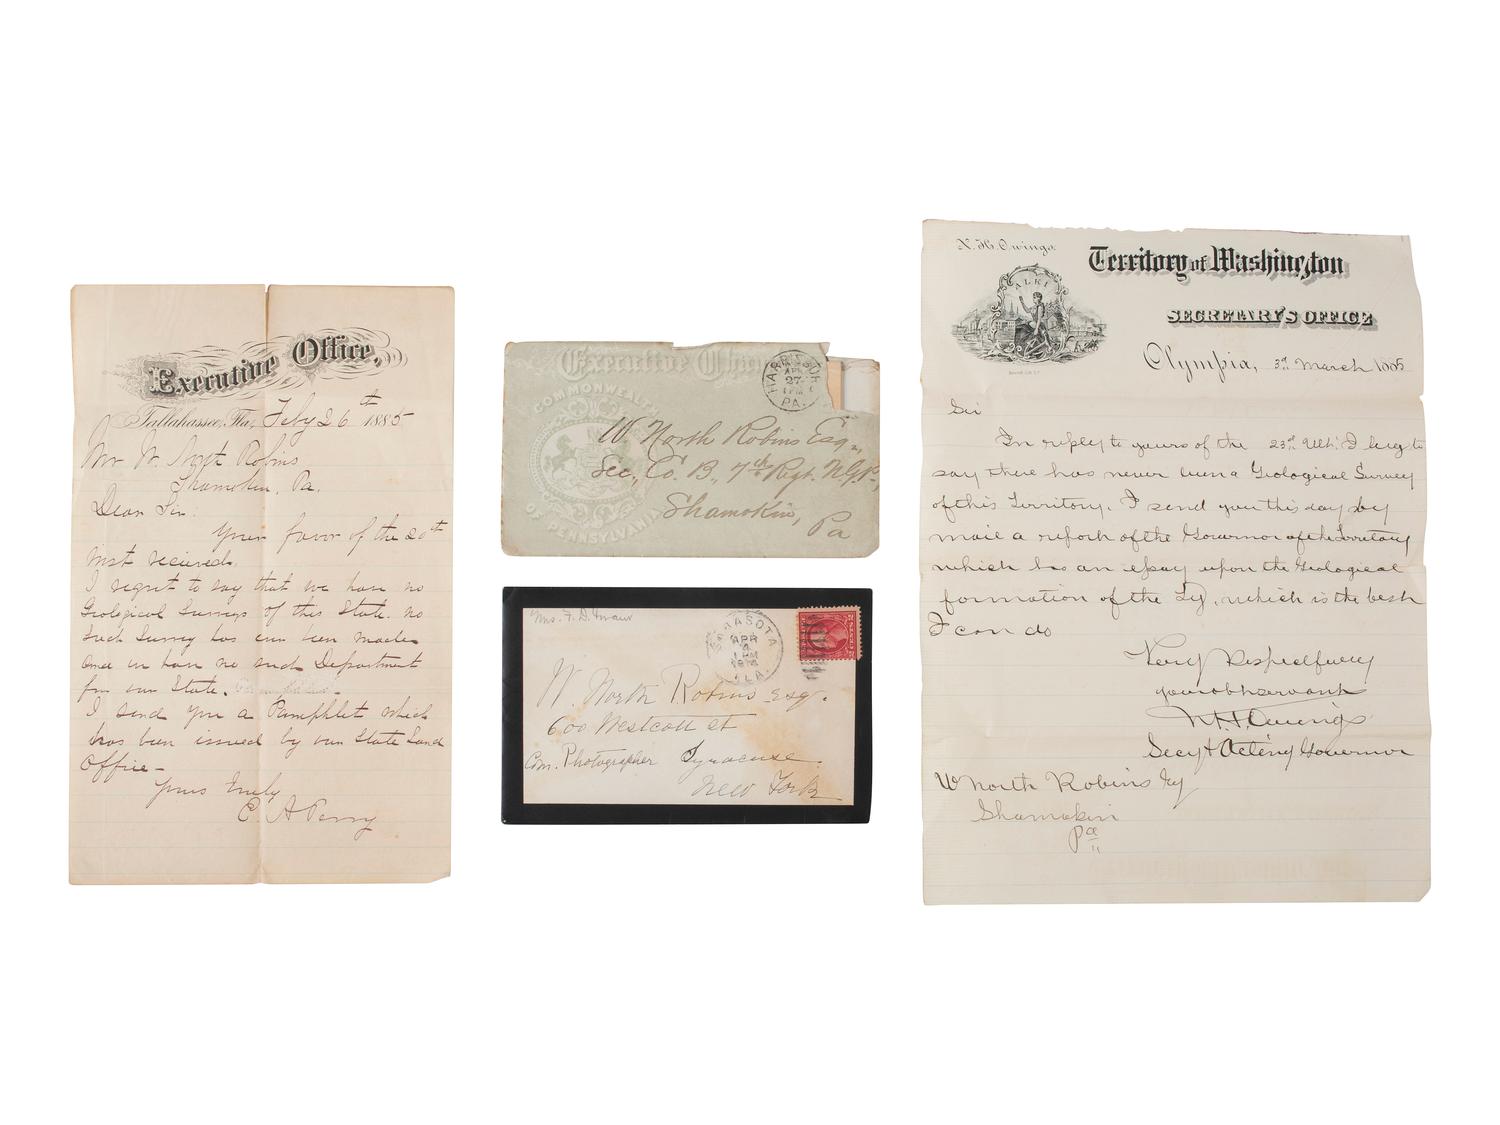 Executive Office,
Tallahassee, Fla, Feby 26th 1885
Mr W. North Robins
Shamokin, Pa.
Dear Sir:
Your favor of the 20th
inst received.
I regret to say that we have no
Geological Surveys of this State. no
such Survey has ever been made
and we have no such Department
for our State.
I send you a Pamphlet which
has been issued by our State Land
Office—
Yours truly
E. A Perry
Executive
COMMONWEALTH
OF PENNSYLVANIA
APR
27
PA.
W. North Robins Esq.,
Sec., Co. B., 7th Regt. N.G.P.,
Shamokin,
Pa
Mrs. F. D.
SARASOTA
APR
4
1 PM
FLA.
W. North Robins Esq.
600 Westcott St
Com. Photographer Syracuse.
New York
N. H. Owings.
ALKI
Territory of Washington
SECRETARY'S OFFICE
Olympia, 3rd March 1885
Sir
In reply to yours of the 23rd Ult. I beg to
say there has never been a Geological Survey
of this Territory. I send you this day by
mail a report of the Governor of the Territory
which has an essay upon the Geological
formation of the Ty, which is the best
I can do
Very Respectfully
your obt servant
N. H. Owings
Secy & Acting Governor
W North Robins Esq
Shamokin
Pa